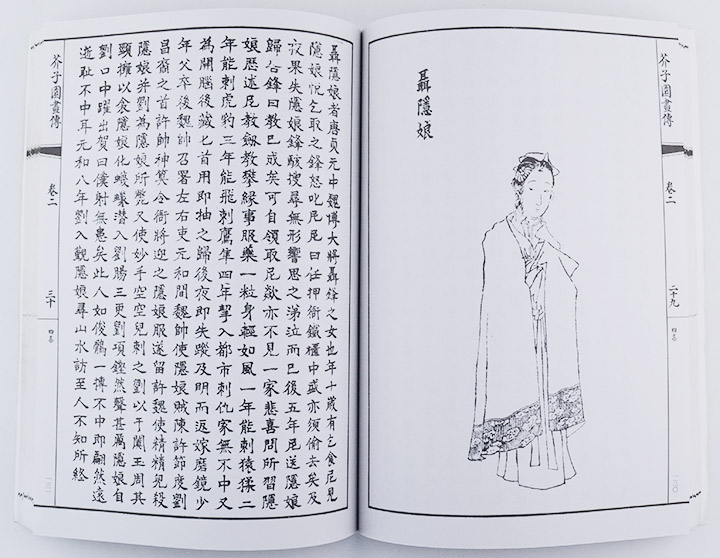 芥子園畫傳
卷二
二十九
一三〇
聶隱娘
聶隱娘者唐貞元中魏博大將聶鋒之女也年十歲有乞食尼見
隱娘悅乞取之鋒怒叱尼尼曰任押衙鐵櫃中盛亦須偷去矣及
夜果失隱娘鋒駭搜尋無形響思之涕泣而已後五年尼送隱娘
歸告鋒曰教已成矣可自領取尼歘亦不見一家悲喜問所習隱
娘歷述尼教劍教攀緣事服藥一粒身輕如風一年能刺猿猱二
年能刺虎豹三年能飛刺鷹隼四年挈入都市刺仇家無不中又
為開腦後藏匕首用即抽之歸後夜即失蹤及明而返嫁磨鏡少
年父卒後魏帥召署左右吏元和間魏帥使隱娘賊陳許節度劉
昌裔之首許帥神算令衙將迎之隱娘服遂留許魏使精精兒殺
隱娘并劉為隱娘所斃又使妙手空空兒刺之劉以于闐玉周其
頸擁以衾隱娘化蠛蠓潛入劉腸三更劉項鏗然聲甚厲隱娘自
劉口中躍出賀曰僕射無患矣此人如俊鶻一搏不中即翩然遠
逝恥不中耳元和八年劉入覲隱娘尋山水訪至人不知所終
芥子園畫傳
卷二
三十
一三一